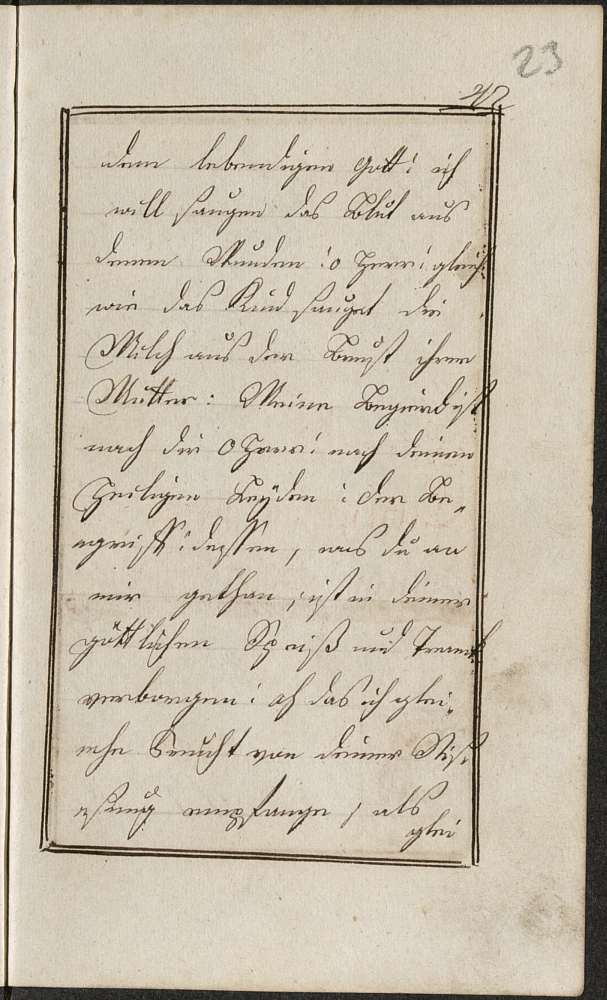 23
42
dem lebendigen Gott! ich
will saugen das Blut aus
denen Wunden! o Herr! gleich
wie das Kind sauget die
Milch aus der Brust ihrer
Mutter: Meine Begierd ist
nach dir O Herr! nach deinen
Heiligen Leyden: der Be„
ngriff: dessen, was du an
mir gethan, ist in deiner
göttlichen Speiß und Tranck
verborgen: ach das ich glei„
che Frucht von deiner
empfange, als
glei